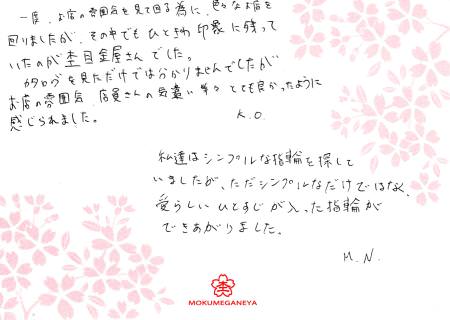 一度、お店の雰囲気を見て回る為に、色々なお店を
回りましたが、その中でもひときわ印象に残って
いたのが杢目金屋さんでした。
カタログを見ただけでは分かりませんでしたが
お店の雰囲気、店員さんの気遣い等々とても良かったように
感じられました。
K.O.
私達はシンプルな指輪を探して
いましたが、ただシンプルなだけではなく、
愛らしいひとすじが入った指輪が
できあがりました。
M.N.
MOKUMEGANEYA